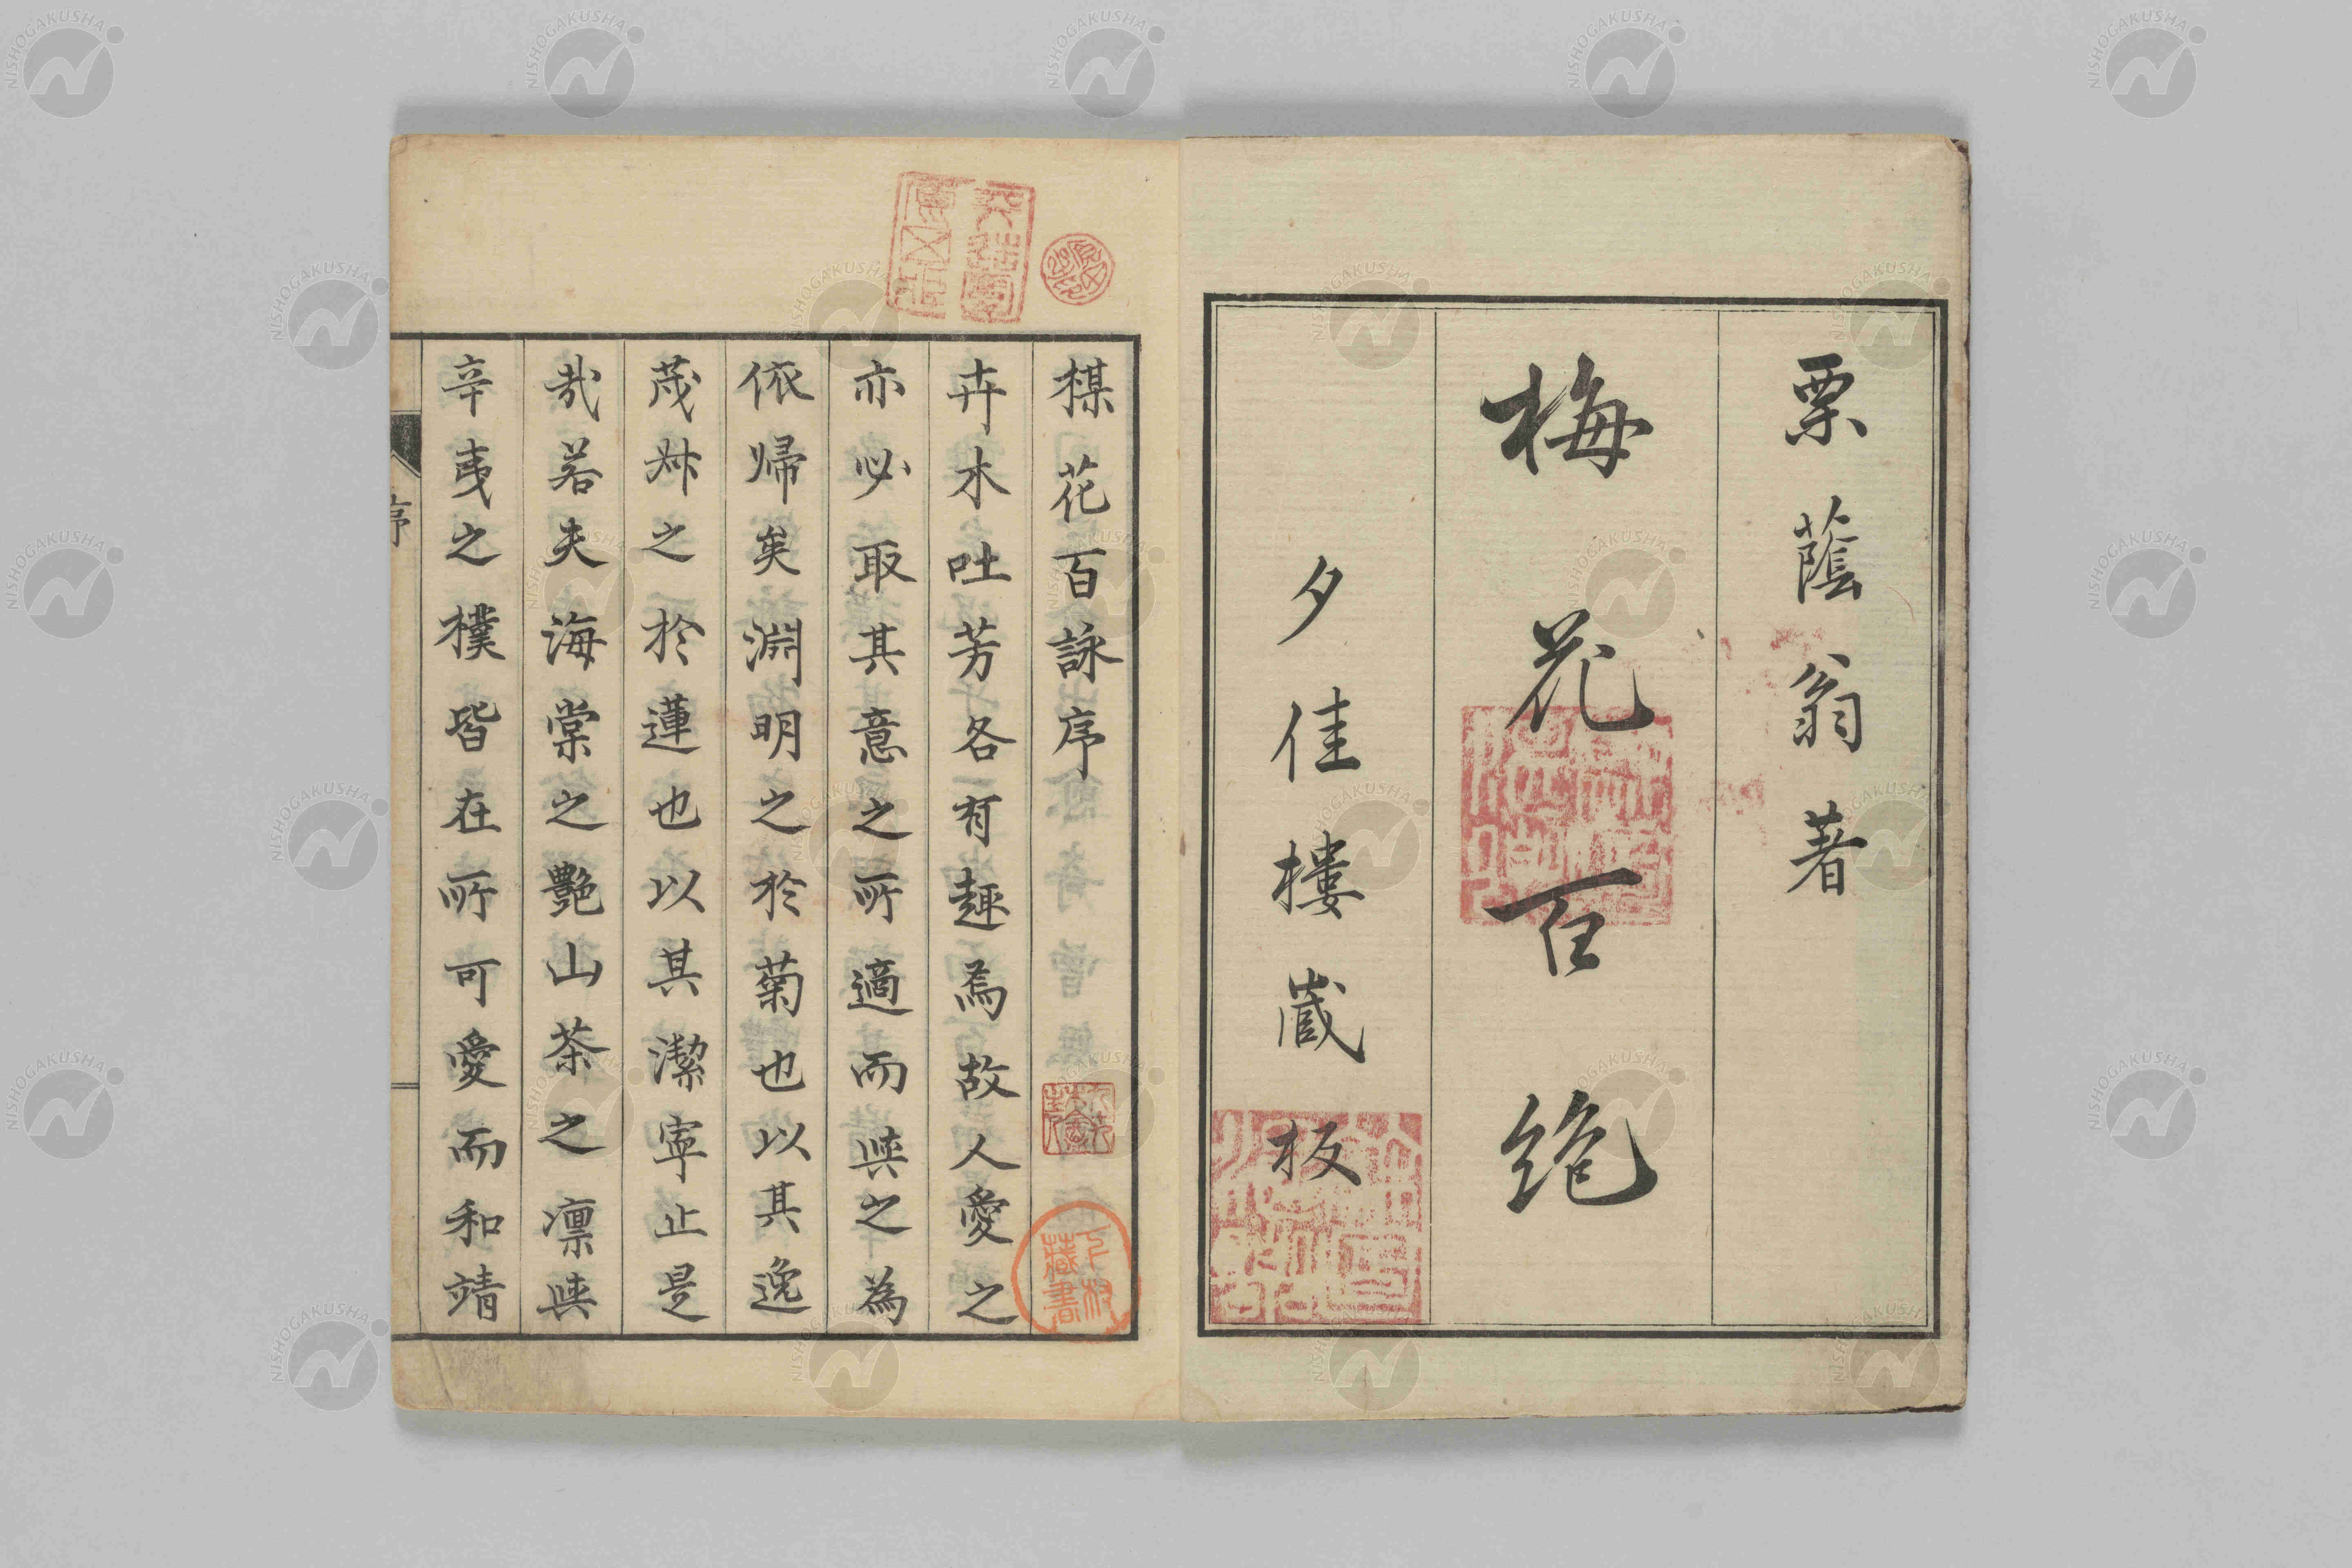 栗蔭翁著
梅花百絶
夕佳樓蔵板
楳花百詠序
卉木吐芳各有趣焉故人愛之
亦必取其意之所適而與之為
依歸矣淵明之於菊也以其逸
茂叔之於蓮也以其潔寧止是
哉若夫海棠之艶山茶之凛與
辛夷之樸皆在所可愛而和靖
序
藏書
NISHOGAKUSHA